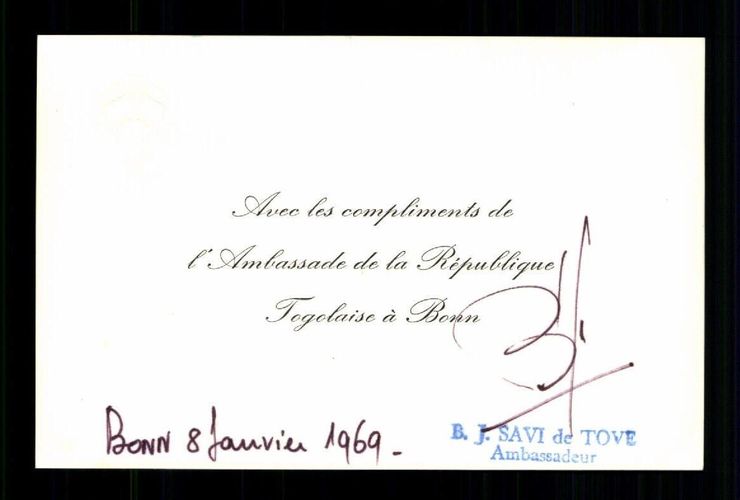 Avec les compliments de
l'Ambassade de la République
Togolaise à Bonn
Bonn 8 Janvier 1969.
B. J. SAVI de TOVE
Ambassadeur